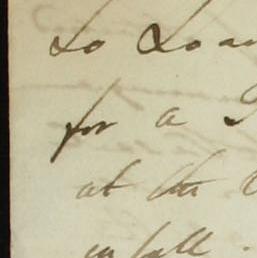 to Loan
for a
at the
in full.